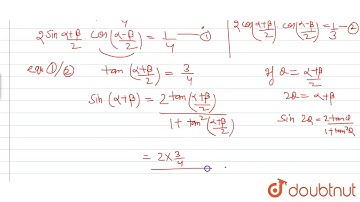 4
2 sin α+β/2 cos(α-β/2) = 1/4 — ①
2 cos(α+β/2) cos(α-β/2) = 1/3 — ②
eqn ①/② tan(α+β/2) = 3/4
if θ = α+β/2
2θ = α+β
sin(α+β) = 2 tan(α+β/2) / 1 + tan²(α+β/2)
sin 2θ = 2 tanθ / 1+tan²θ
= 2×3/4
doubtnut